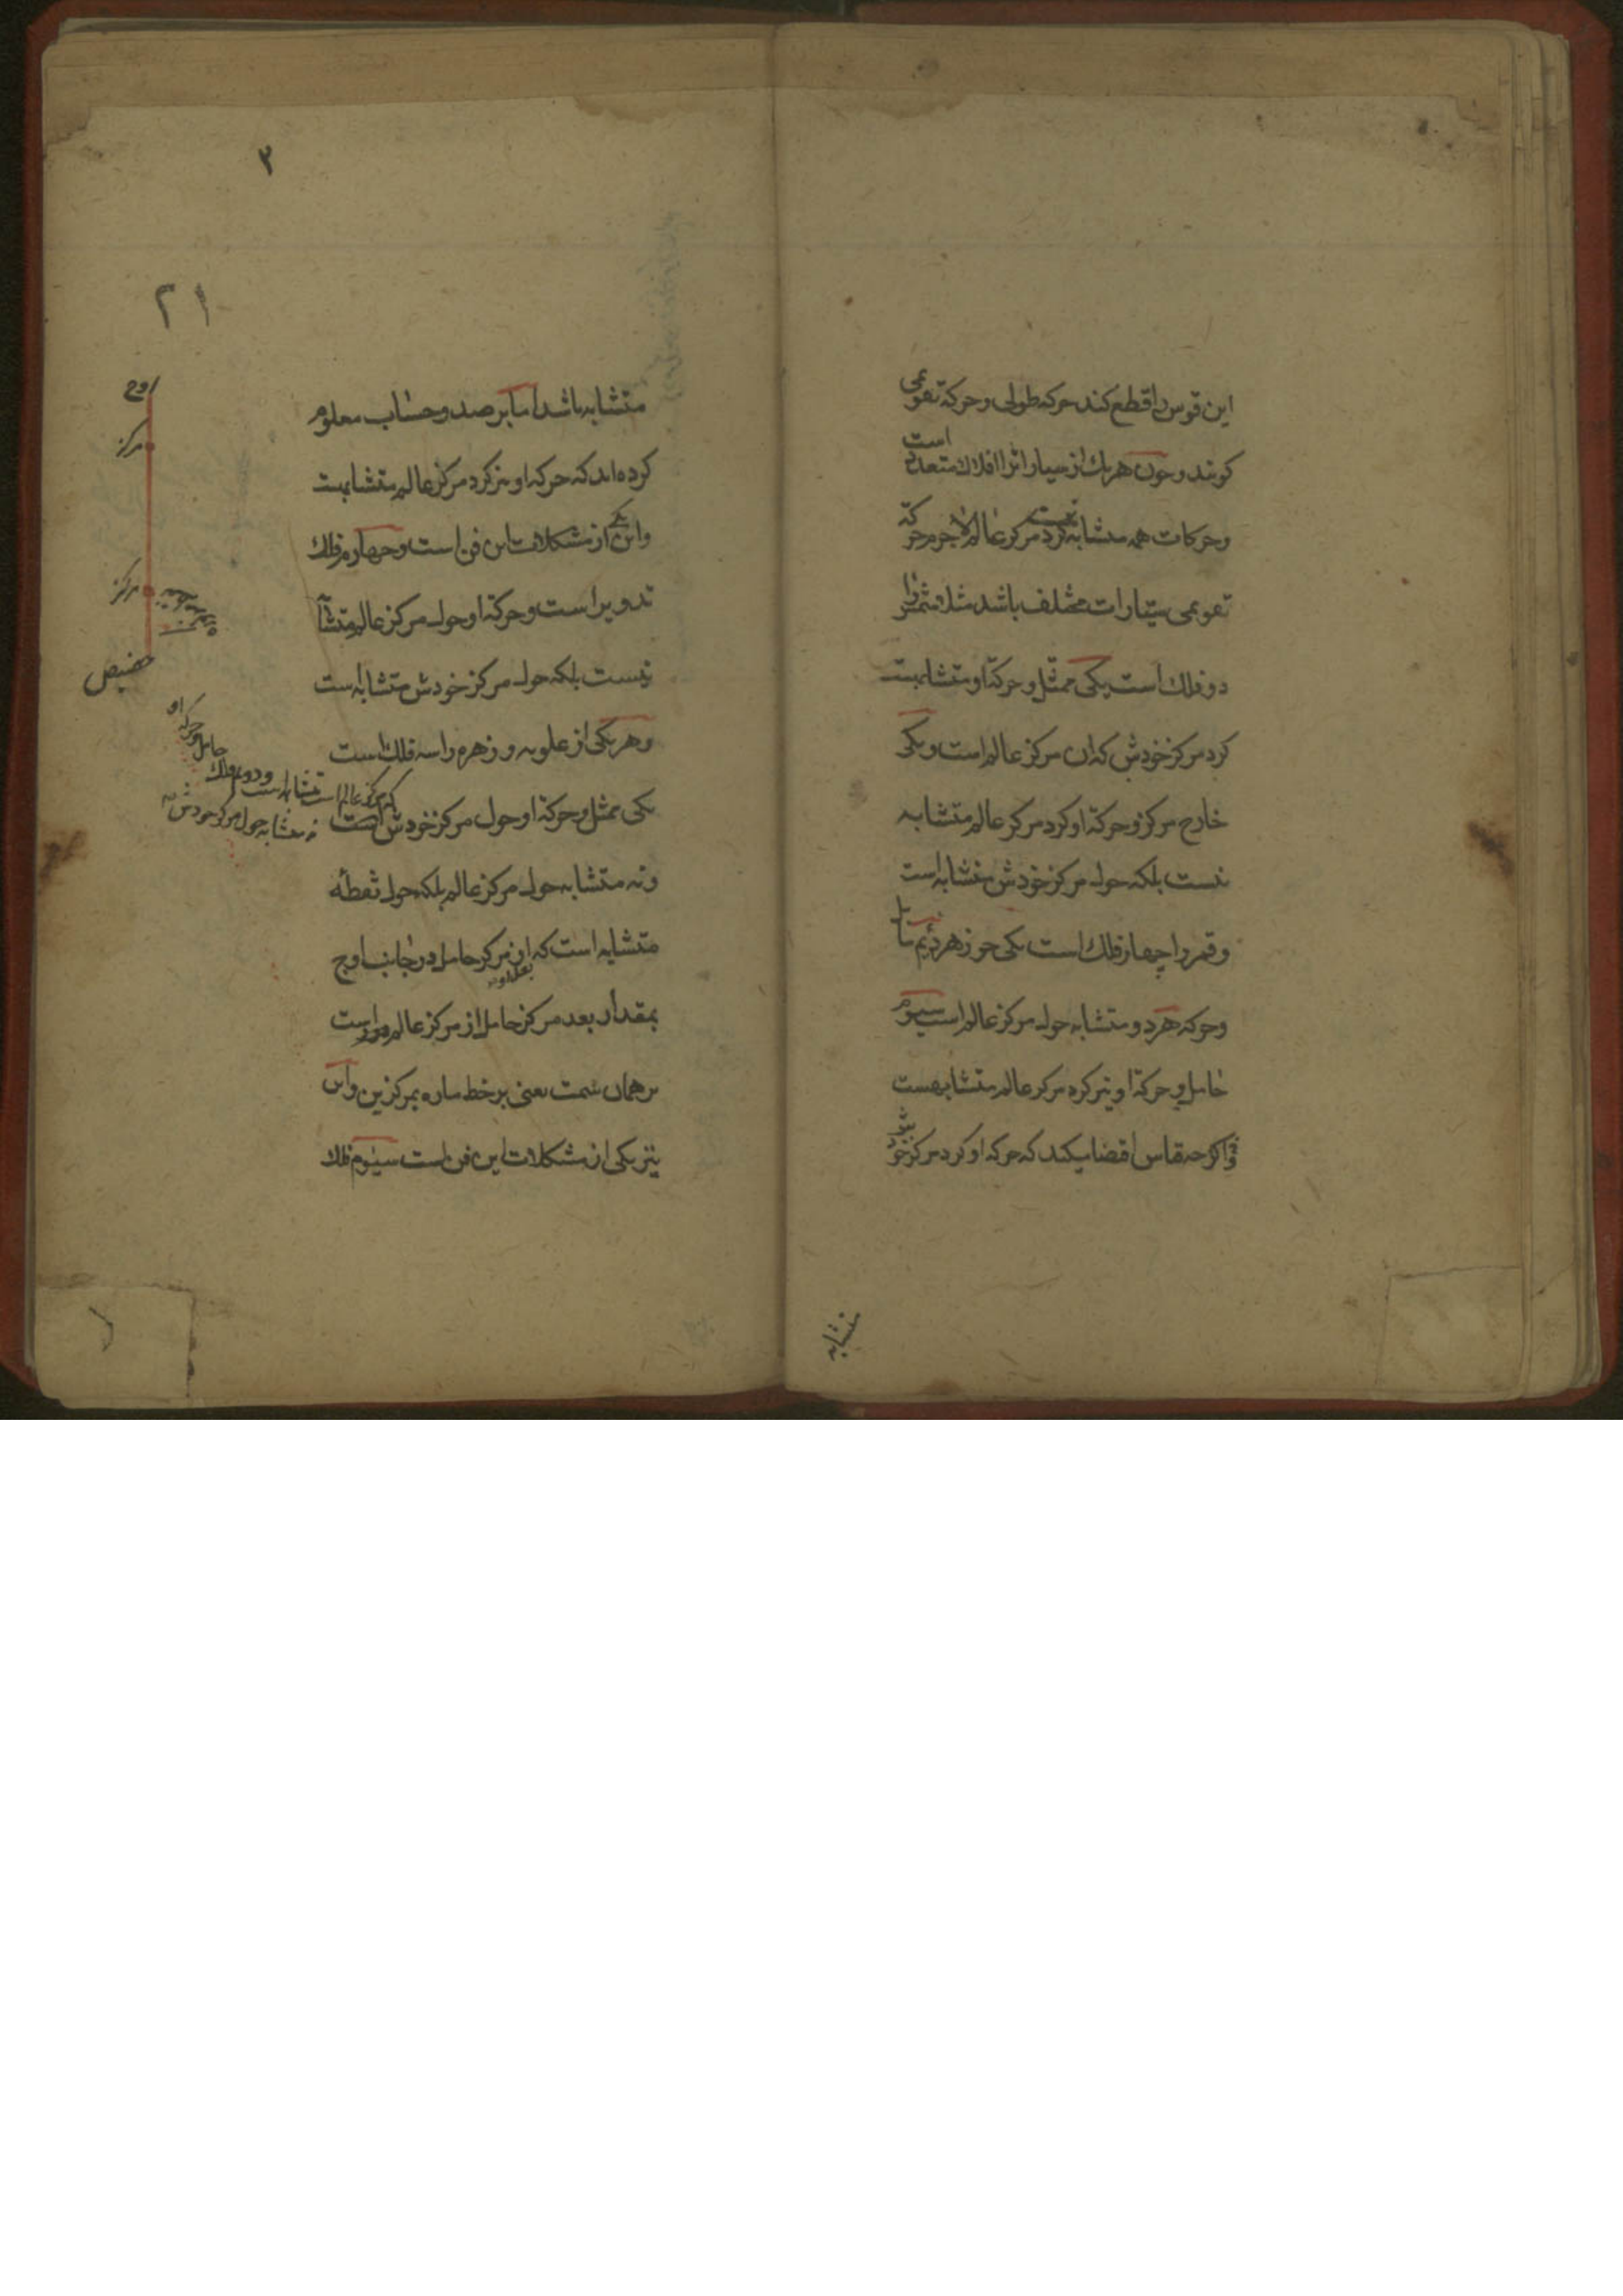 این قوس را قطع کند حرکه طولی و حرکة تقویمی
کویند و چون هر یك از سیارات را افلاك متعدد است
و حرکات همه متشابه نیست کرد مرکز عالم لاجرم حرکة
تقویمی سیارات مختلف باشد مثلا شمس را
دو فلك است یکی ممثل و حرکة او متشابهست
کرد مرکز خودش که ان مرکز عالم است و یکی
خارج مرکز و حرکة او کرد مرکز عالم متشابه
نیست بلکه حول مرکز خودش متشابه است
و قمر را چهار فلك است یکی جوزهر دیم مایل
و حرکه هر دو متشابه حول مرکز عالم است سیوم
حامل و حرکة او نیز کرد مرکز عالم متشابهست
و اکرچه قیاس اقتضا میکند که حرکه او کرد مرکز خودش
متشابه
۳
۲۱
متشابه باشد اما برصد و حساب معلوم
کرده اند که حرکه او نیز کرد مرکز عالم متشابهست
و این یکی از مشکلات این فن است و چهارم فلك
تدویر است و حرکة او حول مرکز عالم متشابه
نیست بلکه حول مرکز خودش متشابه است
و هر یکی از علویه و زهره را سه فلك است
یکی ممثل و حرکة او حول مرکز خودش که مرکز عالم است متشابه است و دوم فلك حامل و حرکه او
نه متشابه حول مرکز خودش
و نه متشابه حول مرکز عالم بلکه حول نقطه
متشابه است که از مرکز حامل در جانب اوج
بمقدار بعد مرکز حامل از مرکز عالم دور است
بر همان سمت یعنی بر خط ماره بمرکزین و این
نیز یکی از مشکلات این فن است سیوم فلك
اوج
مرکز
مرکز
حضیض